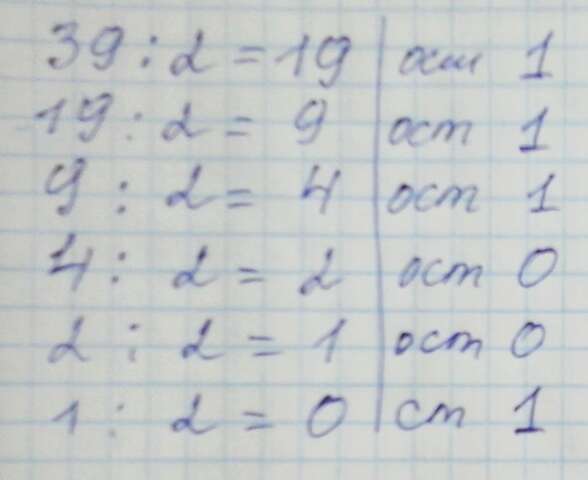 39 : 2 = 19 ост 1
19 : 2 = 9 ост 1
9 : 2 = 4 ост 1
4 : 2 = 2 ост 0
2 : 2 = 1 ост 0
1 : 2 = 0 ст 1